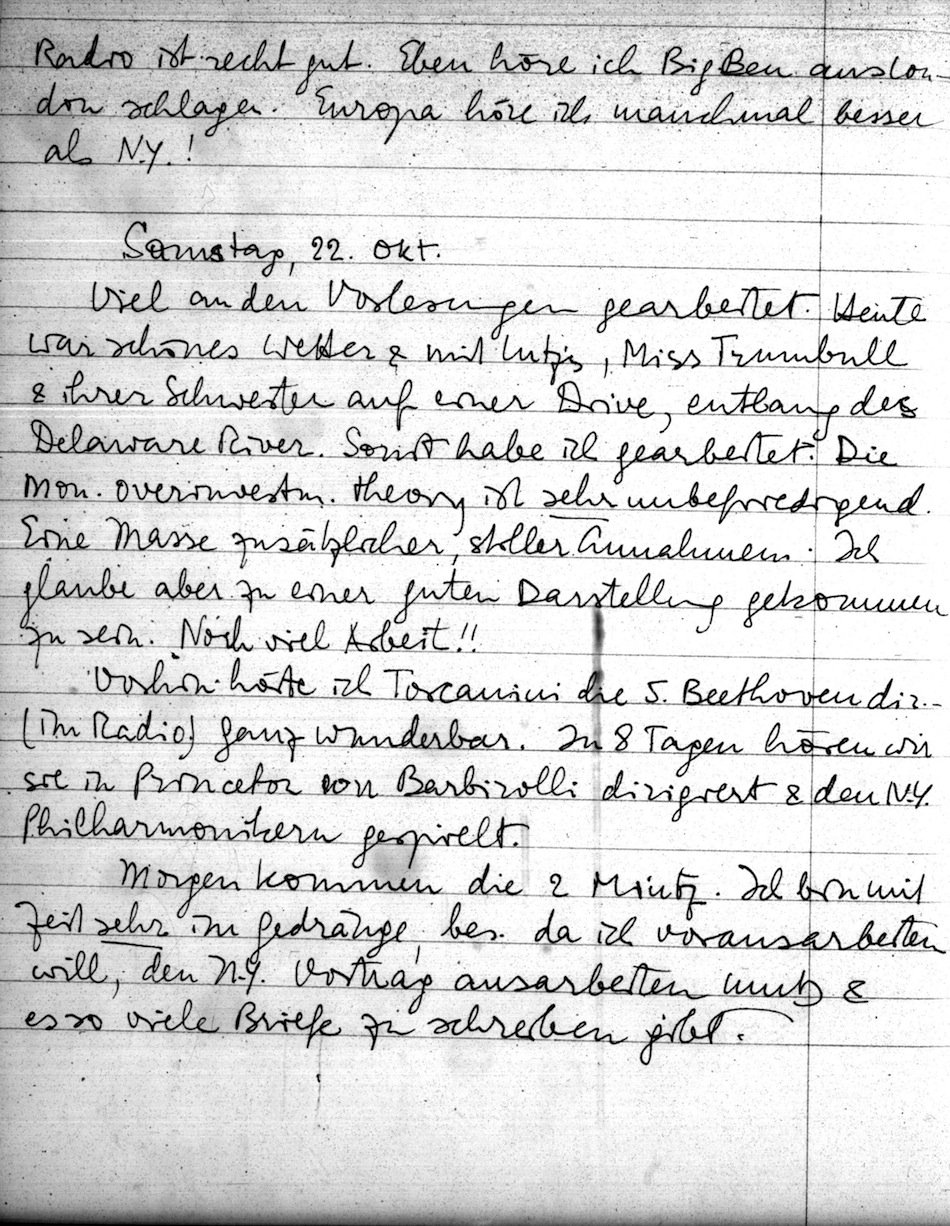 Radio ist recht gut. Eben höre ich Big Ben aus Lon-
don schlagen. Europa höre ich manchmal besser
als N.Y.!
Samstag, 22. Okt.
Viel an den Vorlesungen gearbeitet. Heute
war schönes Wetter & mit Lutz's, Miss Trumbull
& ihrer Schwester auf einer Drive, entlang des
Delaware River. Sonst habe ich gearbeitet. Die
Mon. overinvestm. theory ist sehr unbefriedigend.
Eine Masse zusätzlicher, stiller Annahmen. Ich
glaube aber zu einer guten Darstellung gekommen
zu sein. Noch viel Arbeit!!
Vorhin hörte ich Toscanini die 5. Beethoven dir.-
(im Radio) ganz wunderbar. In 8 Tagen hören wir
sie in Princeton von Barbirolli dirigiert & den N.Y.
Philharmonikern gespielt.
Morgen kommen die 2 Mintz. Ich bin mit
Zeit sehr im Gedränge, bes. da ich vorausarbeiten
will, den N.Y. Vortrag ausarbeiten muß &
es so viele Briefe zu schreiben gibt.